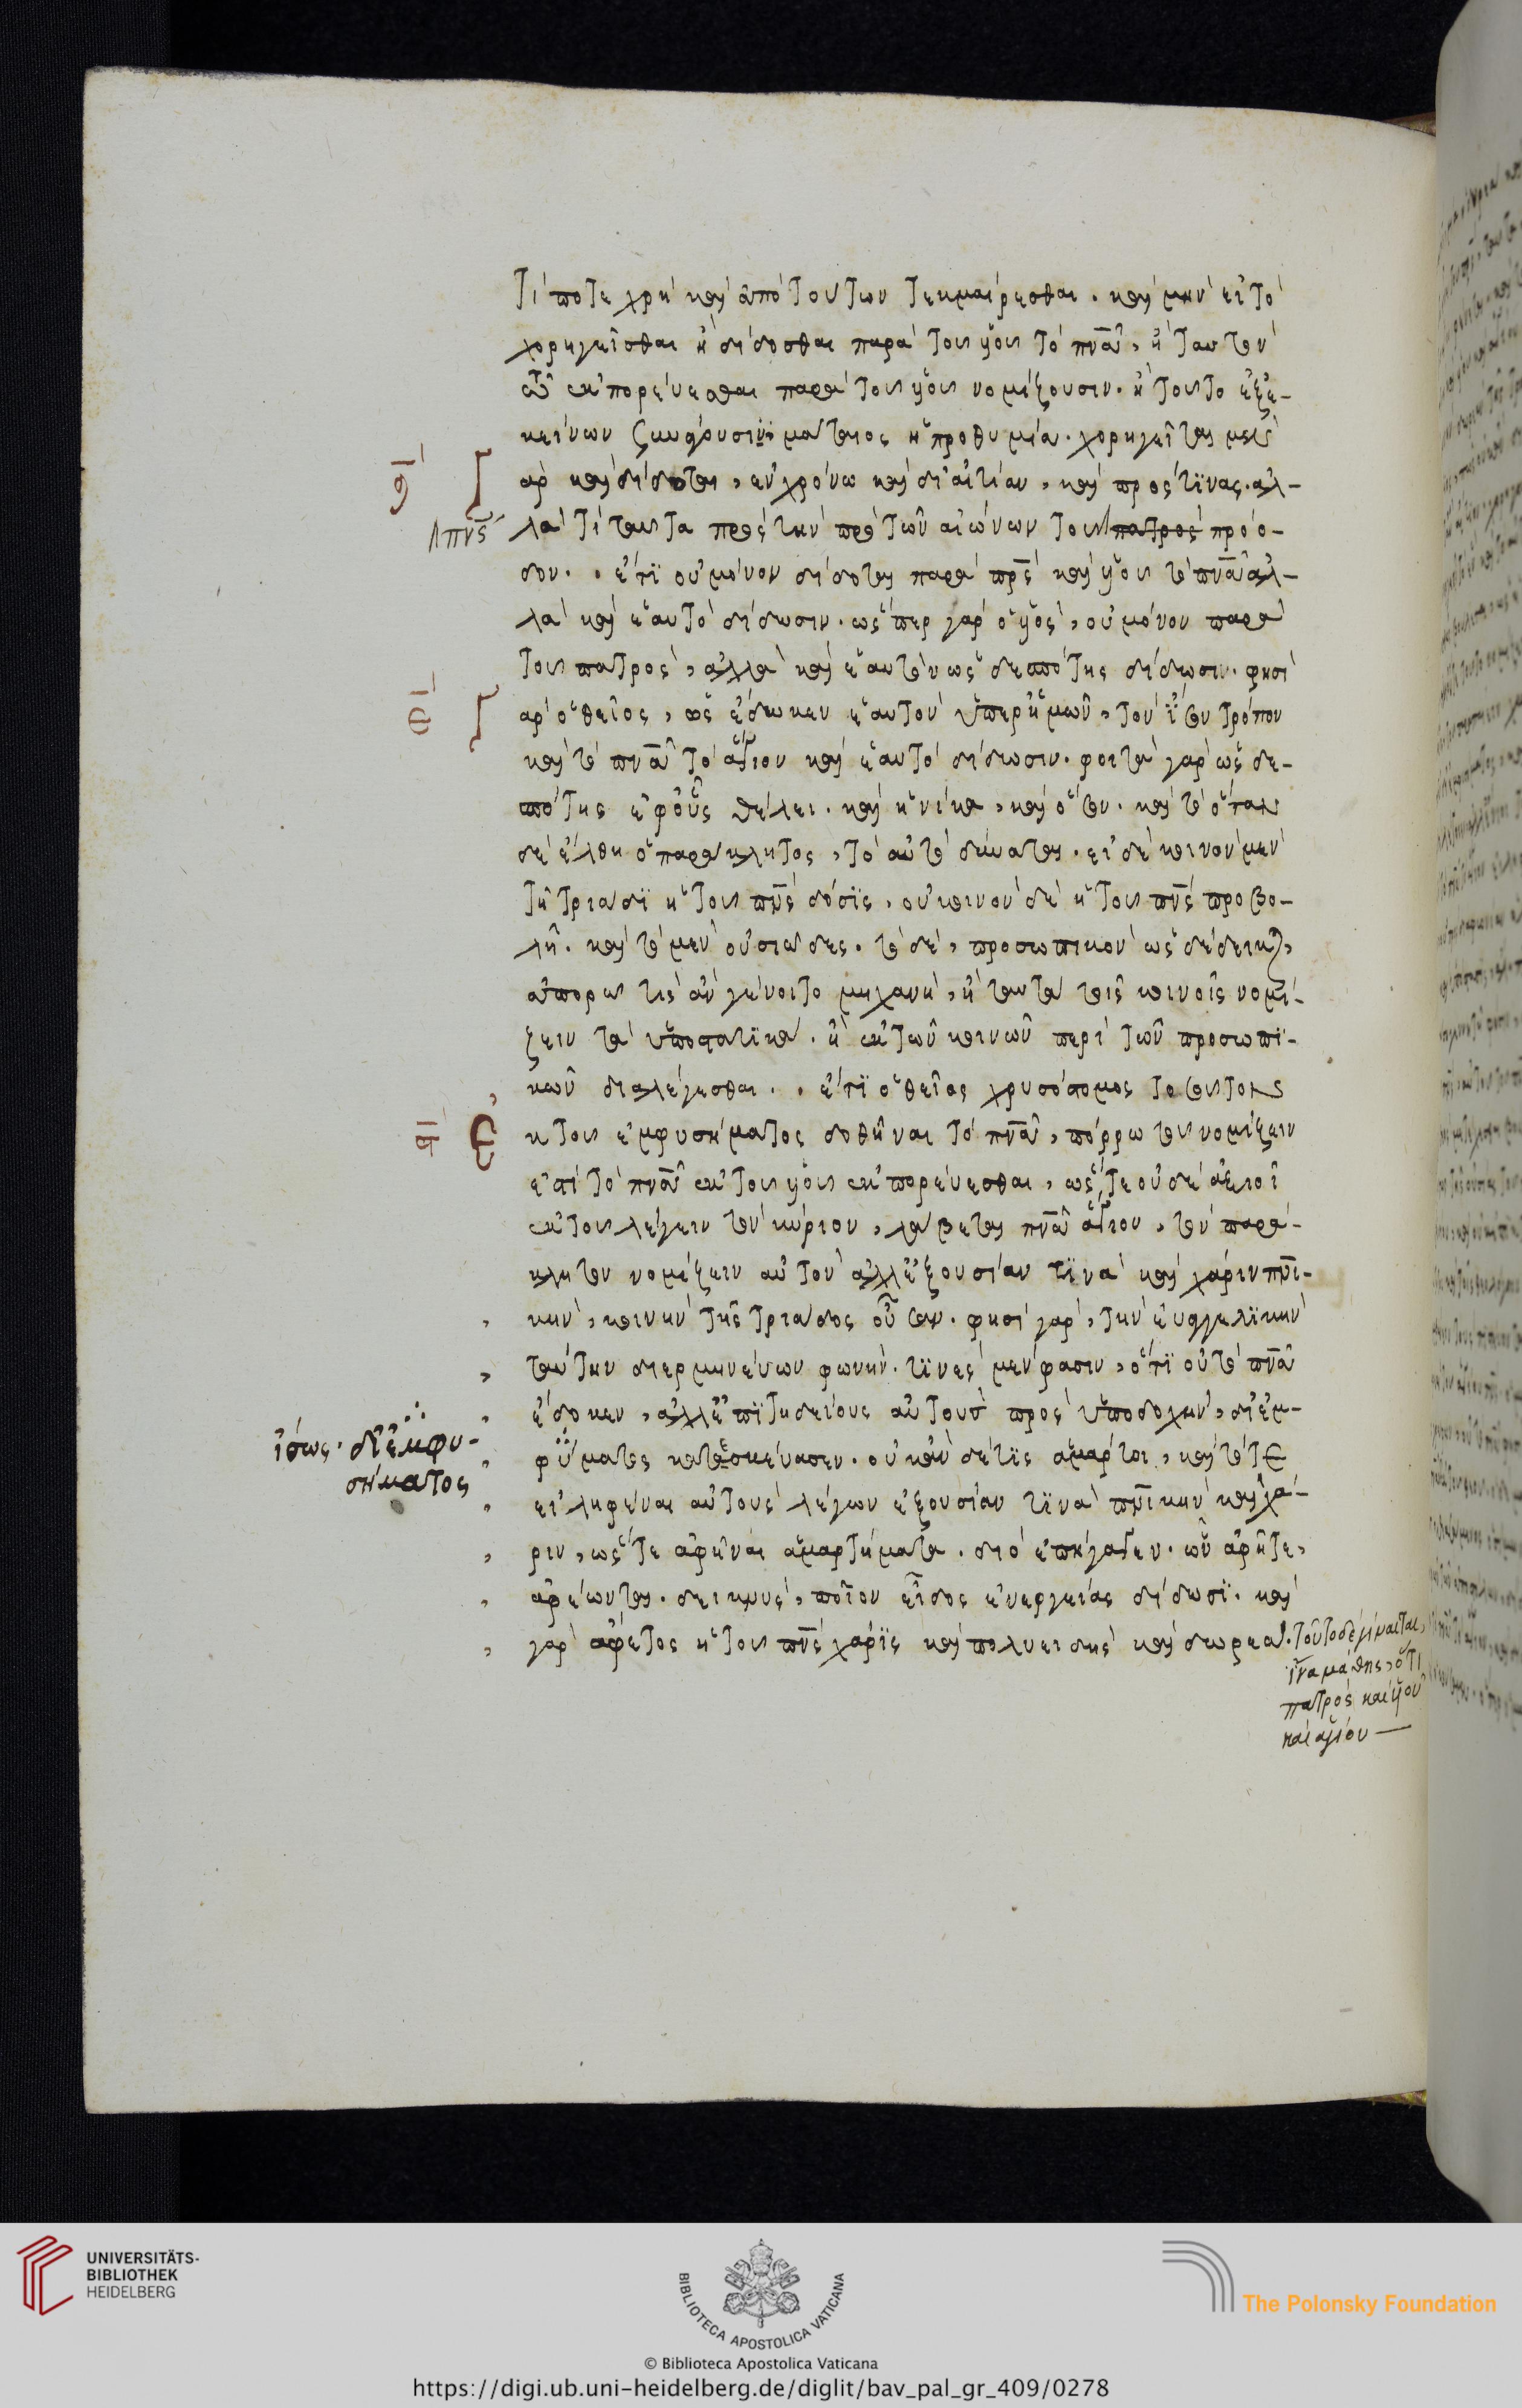 τί ποτε χρὴ καὶ ἀπὸ τούτων τεκμαίρεσθαι. καὶ μὴν εἰ τὸ
χορηγεῖσθαι ἢ δίδοσθαι παρὰ τοῦ υἱοῦ τὸ πνᾶ, ἢ ταυτὸν
τῶ ἐκπορεύεσθαι παρὰ τοῦ υἱοῦ νομίζουσιν. ἢ τοῦτο ἐξ ἐ-
κείνων ζωγροῦσιν, μάταιος ἡ προθυμία. χορηγεῖται μὲν
θ
ἀρ καὶ δίδοται, ἐν χρόνω καὶ δι' αἰτίαν, καὶ πρός τινας. ἀλ-
πνς
λὰ τί ταῦτα πρὸς τὴν πρὸ τῶν αἰώνων τοῦ πατρὸς πρόο-
δον. ἔτι οὐ μόνον δίδοται παρὰ πρς καὶ υἱοῦ τὸ πνᾶ ἀλ-
λὰ καὶ ἑαυτὸ δίδωσιν. ὥσπερ γὰρ ὁ υἱὸς, οὐ μόνον παρὰ
τοῦ πατρὸς, ἀλλὰ καὶ ἑαυτὸν ὡς δεσπότης δίδωσιν. φησὶ
ι
ἀρ ὁ θεῖος, ὃς ἔδωκεν ἑαυτὸν ὑπὲρ ἡμῶν, τὸν ἴσον τρόπον
καὶ τὸ πνᾶ τὸ ἅγιον καὶ ἑαυτὸ δίδωσιν. φοιτᾶ γὰρ ὡς δε-
πότης ἐφ' οὓς θέλει. καὶ ἡνίκα, καὶ ὅσον. καὶ τὸ ὅταν
δὲ ἔλθη ὁ παράκλητος, τὸ αὐτὸ δύναται. εἰ δὲ κοινὸν μὲν
τῆ τριάδι ἡ τοῦ πνς δόσις, οὐ κοινὸν δὲ ἡ τοῦ πνς προβο-
λή. καὶ τὸ μὲν οὐσιῶδες. τὸ δὲ, προσωπικὸν ὡς δέδεικται,
ἄπορος τίς ἂν γένοιτο μηχανὴ, ἢ ταυτὰ τοῖς κοινοῖς νομί-
ζειν τὰ ὑποστατικὰ. ἢ ἐκ τῶν κοινῶν περὶ τῶν προσωπι-
κῶν διαλέγεσθαι. ἔτι ὁ θεῖος χρυσόστομος τοσοῦτον
ια
ἐκ τοῦ ἐμφυσήματος δοθῆναι τὸ πνᾶ, πόρρω τοῦ νομίζειν
ἐστὶ τὸ πνᾶ ἐκ τοῦ υἱοῦ ἐκπορεύεσθαι, ὥστε οὐδὲ ἀξιοῖ
ἐκ τοῦ λέγειν τὸν κύριον, λάβετε πνᾶ ἅγιον, τὸν παρά-
κλητον νομίζειν αὐτὸν ἀλλ' ἐξουσίαν τινὰ καὶ χάριν πνι-
κὴν, κοινὴν τῆς τριάδος οὖσαν. φησὶ γὰρ, τὴν εὐαγγελικὴν
ταύτην διερμηνεύων φωνὴν. τινὲς μὲν φασιν, ὅτι οὐ τὸ πνᾶ
ἔδωκεν, ἀλλ' ἐπιτηδείους αὐτοὺς πρὸς ὑποδοχὴν, δι' ἐμ-
ἴσως. δι' ἐμφυ-
σήματος
φύματος κατεσκεύασεν. οὐκ ἂν δέ τις ἁμάρτοι, καὶ τότε
εἰληφέναι αὐτοὺς λέγων ἐξουσίαν τινὰ πνικὴν καὶ χά-
ριν, ὥστε ἀφιέναι ἁμαρτήματα. διὸ ἐπήγαγεν. ὧν ἀφῆτε,
ἀφέωνται. δεικνὺς, ποῖον εἶδος ἐνεργείας δίδωσι. καὶ
γὰρ ἄφατος ἡ τοῦ πνς χάρις καὶ πολυειδὴς καὶ δωρεά. τοῦτο δὲ γίνεται,
ἵνα μάθης, ὅτι
πατρὸς καὶ υἱοῦ
καὶ ἁγίου
UNIVERSITÄTS-
BIBLIOTHEK
HEIDELBERG
BIBLIOTECA APOSTOLICA VATICANA
The Polonsky Foundation
© Biblioteca Apostolica Vaticana
https://digi.ub.uni-heidelberg.de/diglit/bav_pal_gr_409/0278